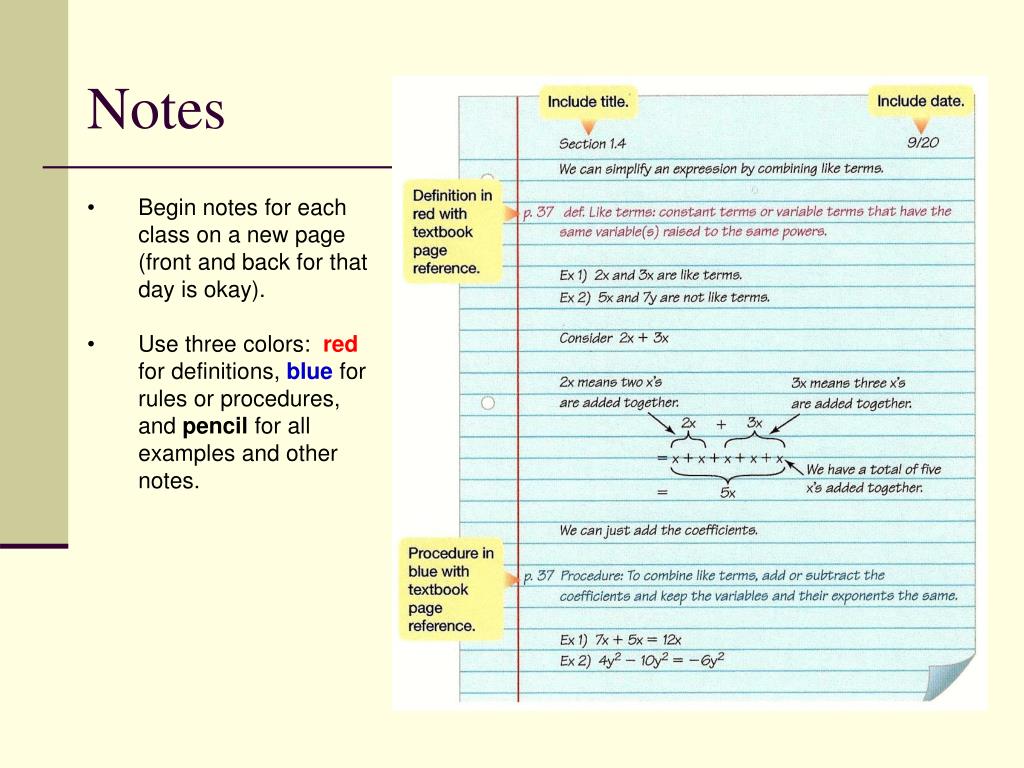 Notes
• Begin notes for each
class on a new page
(front and back for that
day is okay).
• Use three colors:  red
for definitions, blue for
rules or procedures,
and pencil for all
examples and other
notes.
Include title.
Include date.
Section 1.4
9/20
We can simplify an expression by combining like terms.
Definition in
red with
textbook
page
reference.
p. 37 def. Like terms: constant terms or variable terms that have the
same variable(s) raised to the same powers.
Ex 1) 2x and 3x are like terms.
Ex 2) 5x and 7y are not like terms.
Consider 2x + 3x
2x means two x's
are added together.
3x means three x's
are added together.
2x + 3x
= x + x + x + x + x
We have a total of five
x's added together.
= 5x
We can just add the coefficients.
Procedure in
blue with
textbook
page
reference.
p. 37 Procedure: To combine like terms, add or subtract the
coefficients and keep the variables and their exponents the same.
Ex 1) 7x + 5x = 12x
Ex 2) 4y² − 10y² = −6y²